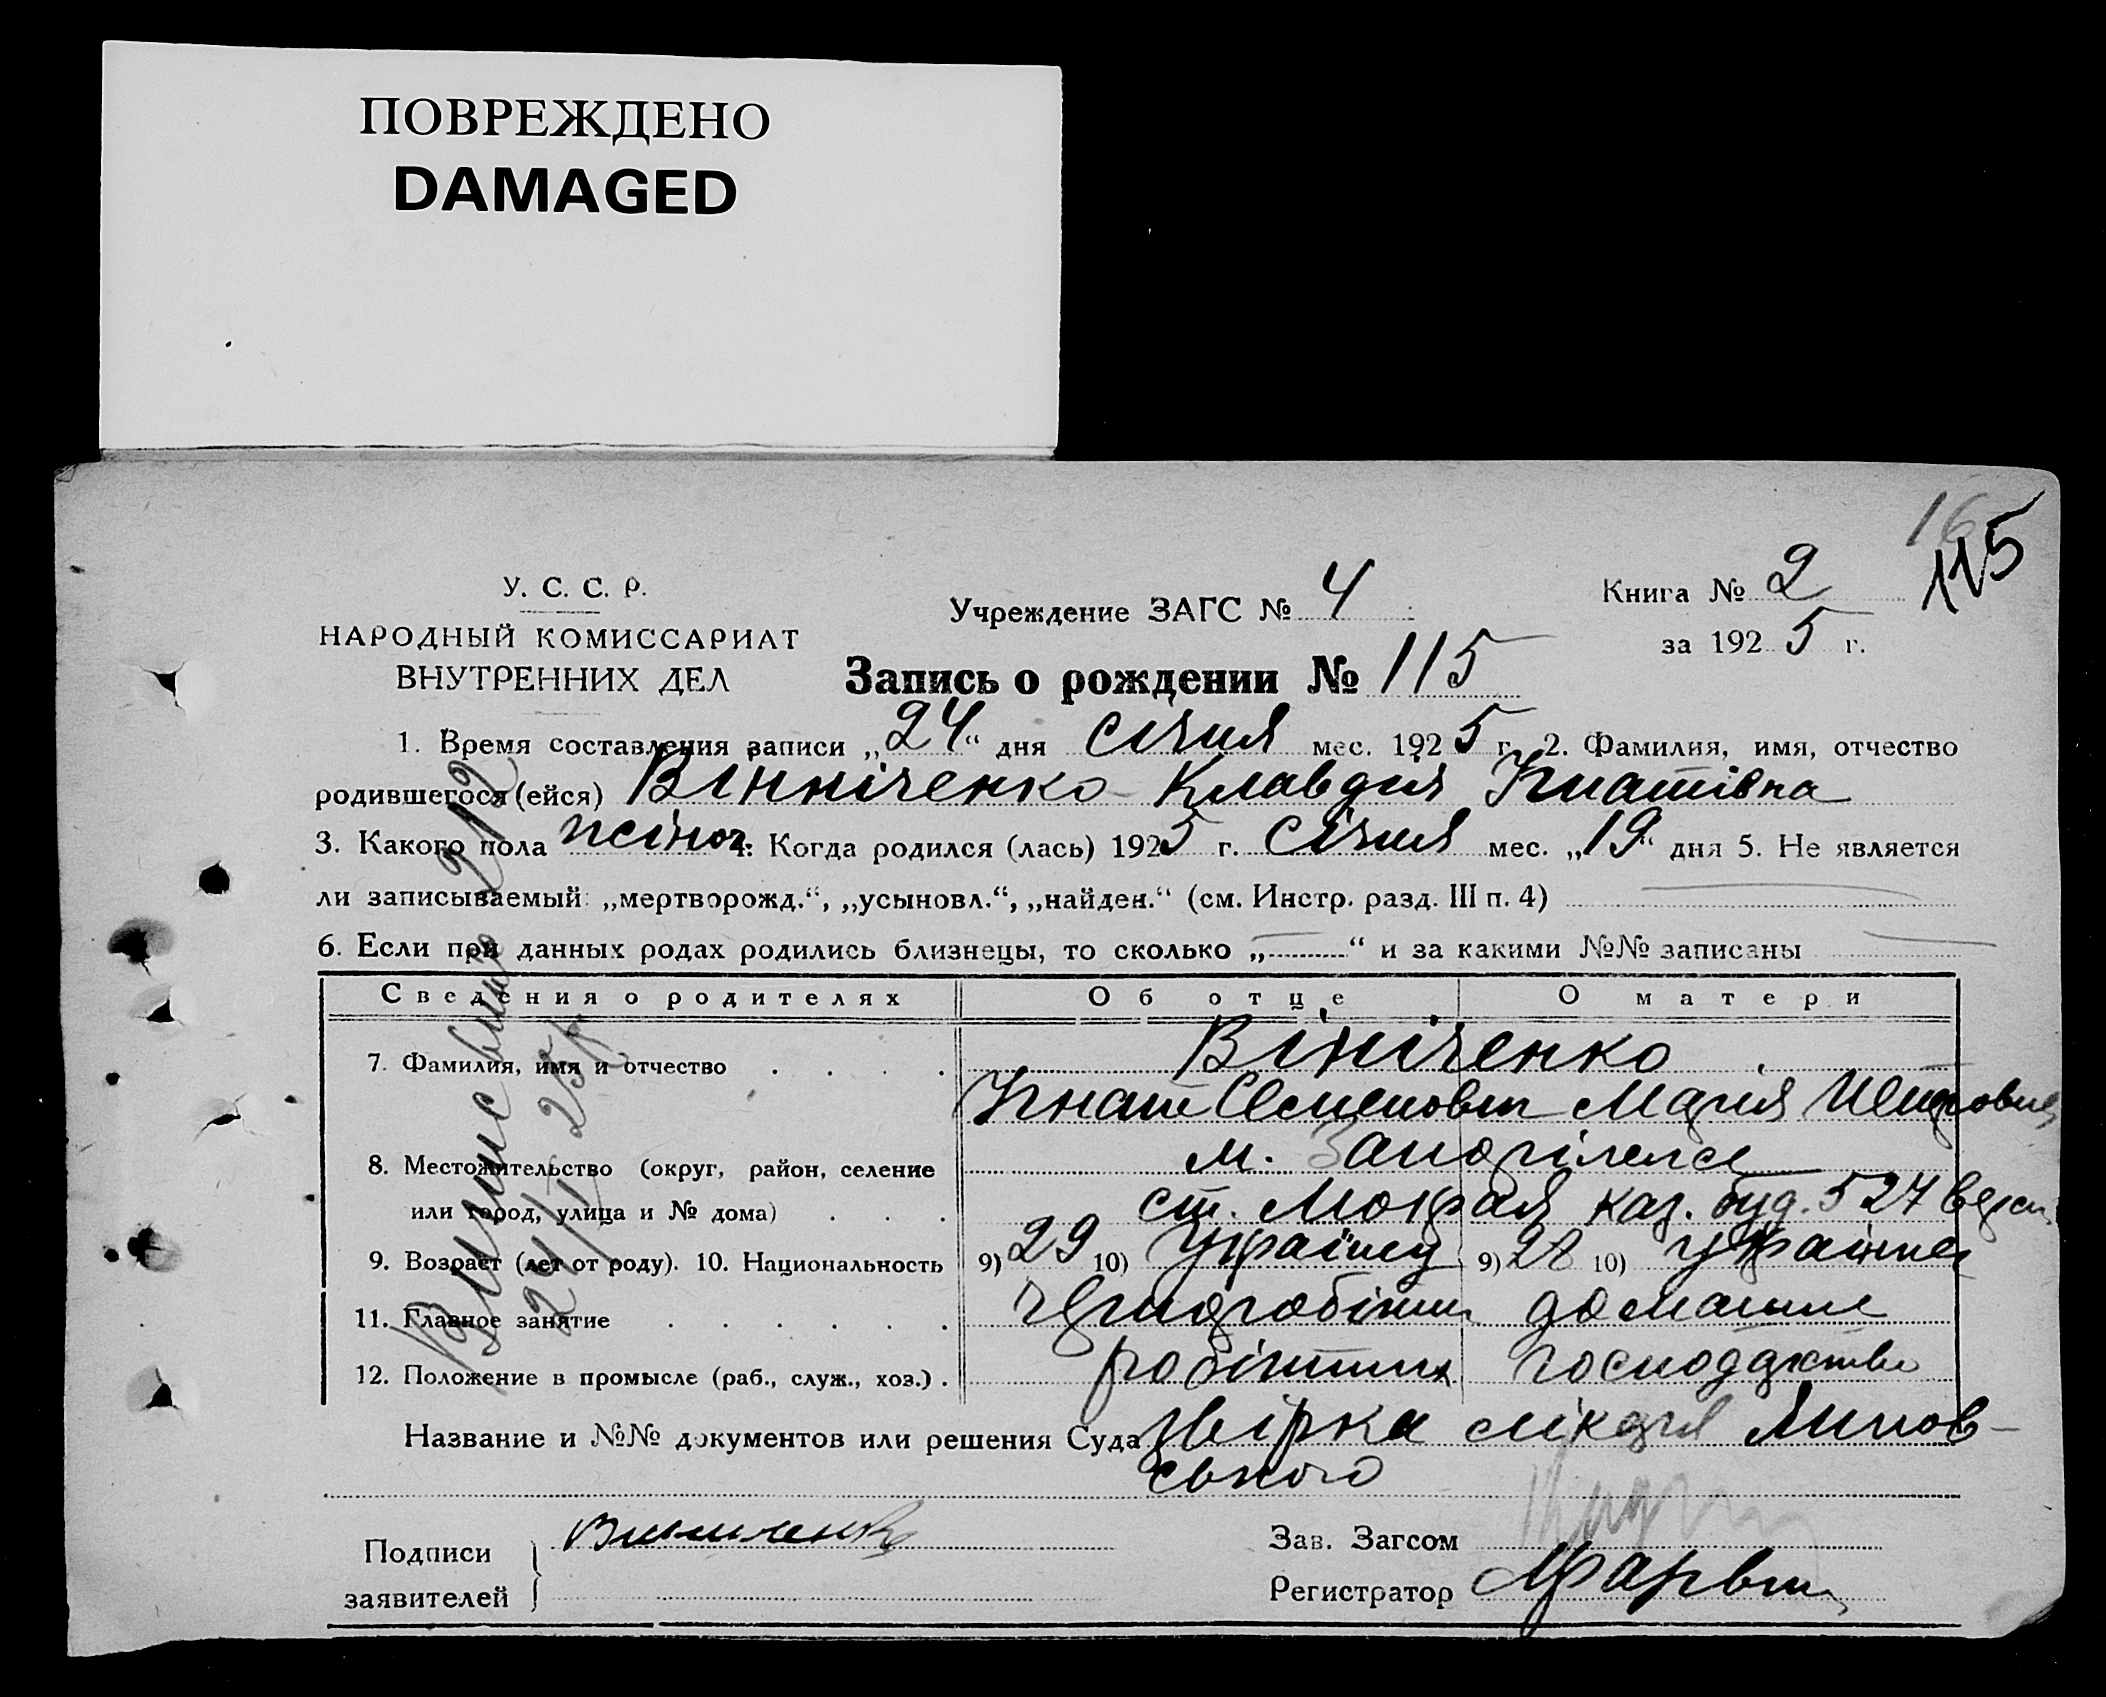 ПОВРЕЖДЕНО
DAMAGED
16
115
У. С. С. Р.
НАРОДНЫЙ КОМИССАРИАТ
ВНУТРЕННИХ ДЕЛ
Учреждение ЗАГС № 4
Книга № 2
за 1925 г.
Запись о рождении № 115
1. Время составления записи „24“ дня Січня мес. 1925 г. 2. Фамилия, имя, отчество
родившегося (ейся) Вінніченко Клавдія Ігнатівна
3. Какого пола жіноч. 4. Когда родился (лась) 1925 г. Січня мес. „19“ дня 5. Не является
ли записываемый: „мертворожд.“, „усыновл.“, „найден.“ (см. Инстр. разд. III п. 4)
6. Если при данных родах родились близнецы, то сколько „ “ и за какими №№ записаны
Сведения о родителях Об отце О матери
7. Фамилия, имя и отчество Вініченко
Ігнат Семенович Марія
8. Местожительство (округ, район, селение м. Запоріжжє
или город, улица и № дома) ст. Мокрая каз. буд. 527 верст
9. Возраст (лет от роду). 10. Национальность 9) 29 10) Українец 9) 28 10) Українка
11. Главное занятие домашнє
12. Положение в промысле (раб., служ., хоз.) робітник господарство
Название и №№ документов или решения Суда лікаря Липов-
ського
Подписи заявителей Винниченко
Зав. Загсом
Регистратор
Выпис 212
24/I 25 р.